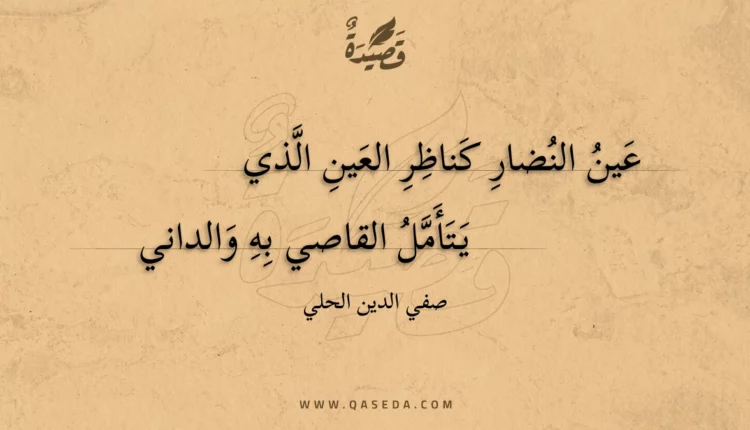 قَصِيْدَةٌ
عَينُ النُضارِ كَناظِرِ العَينِ الَّذي
يَتَأَمَّلُ القاصي بِهِ وَالداني
صفي الدين الحلي
WWW.QASEDA.COM